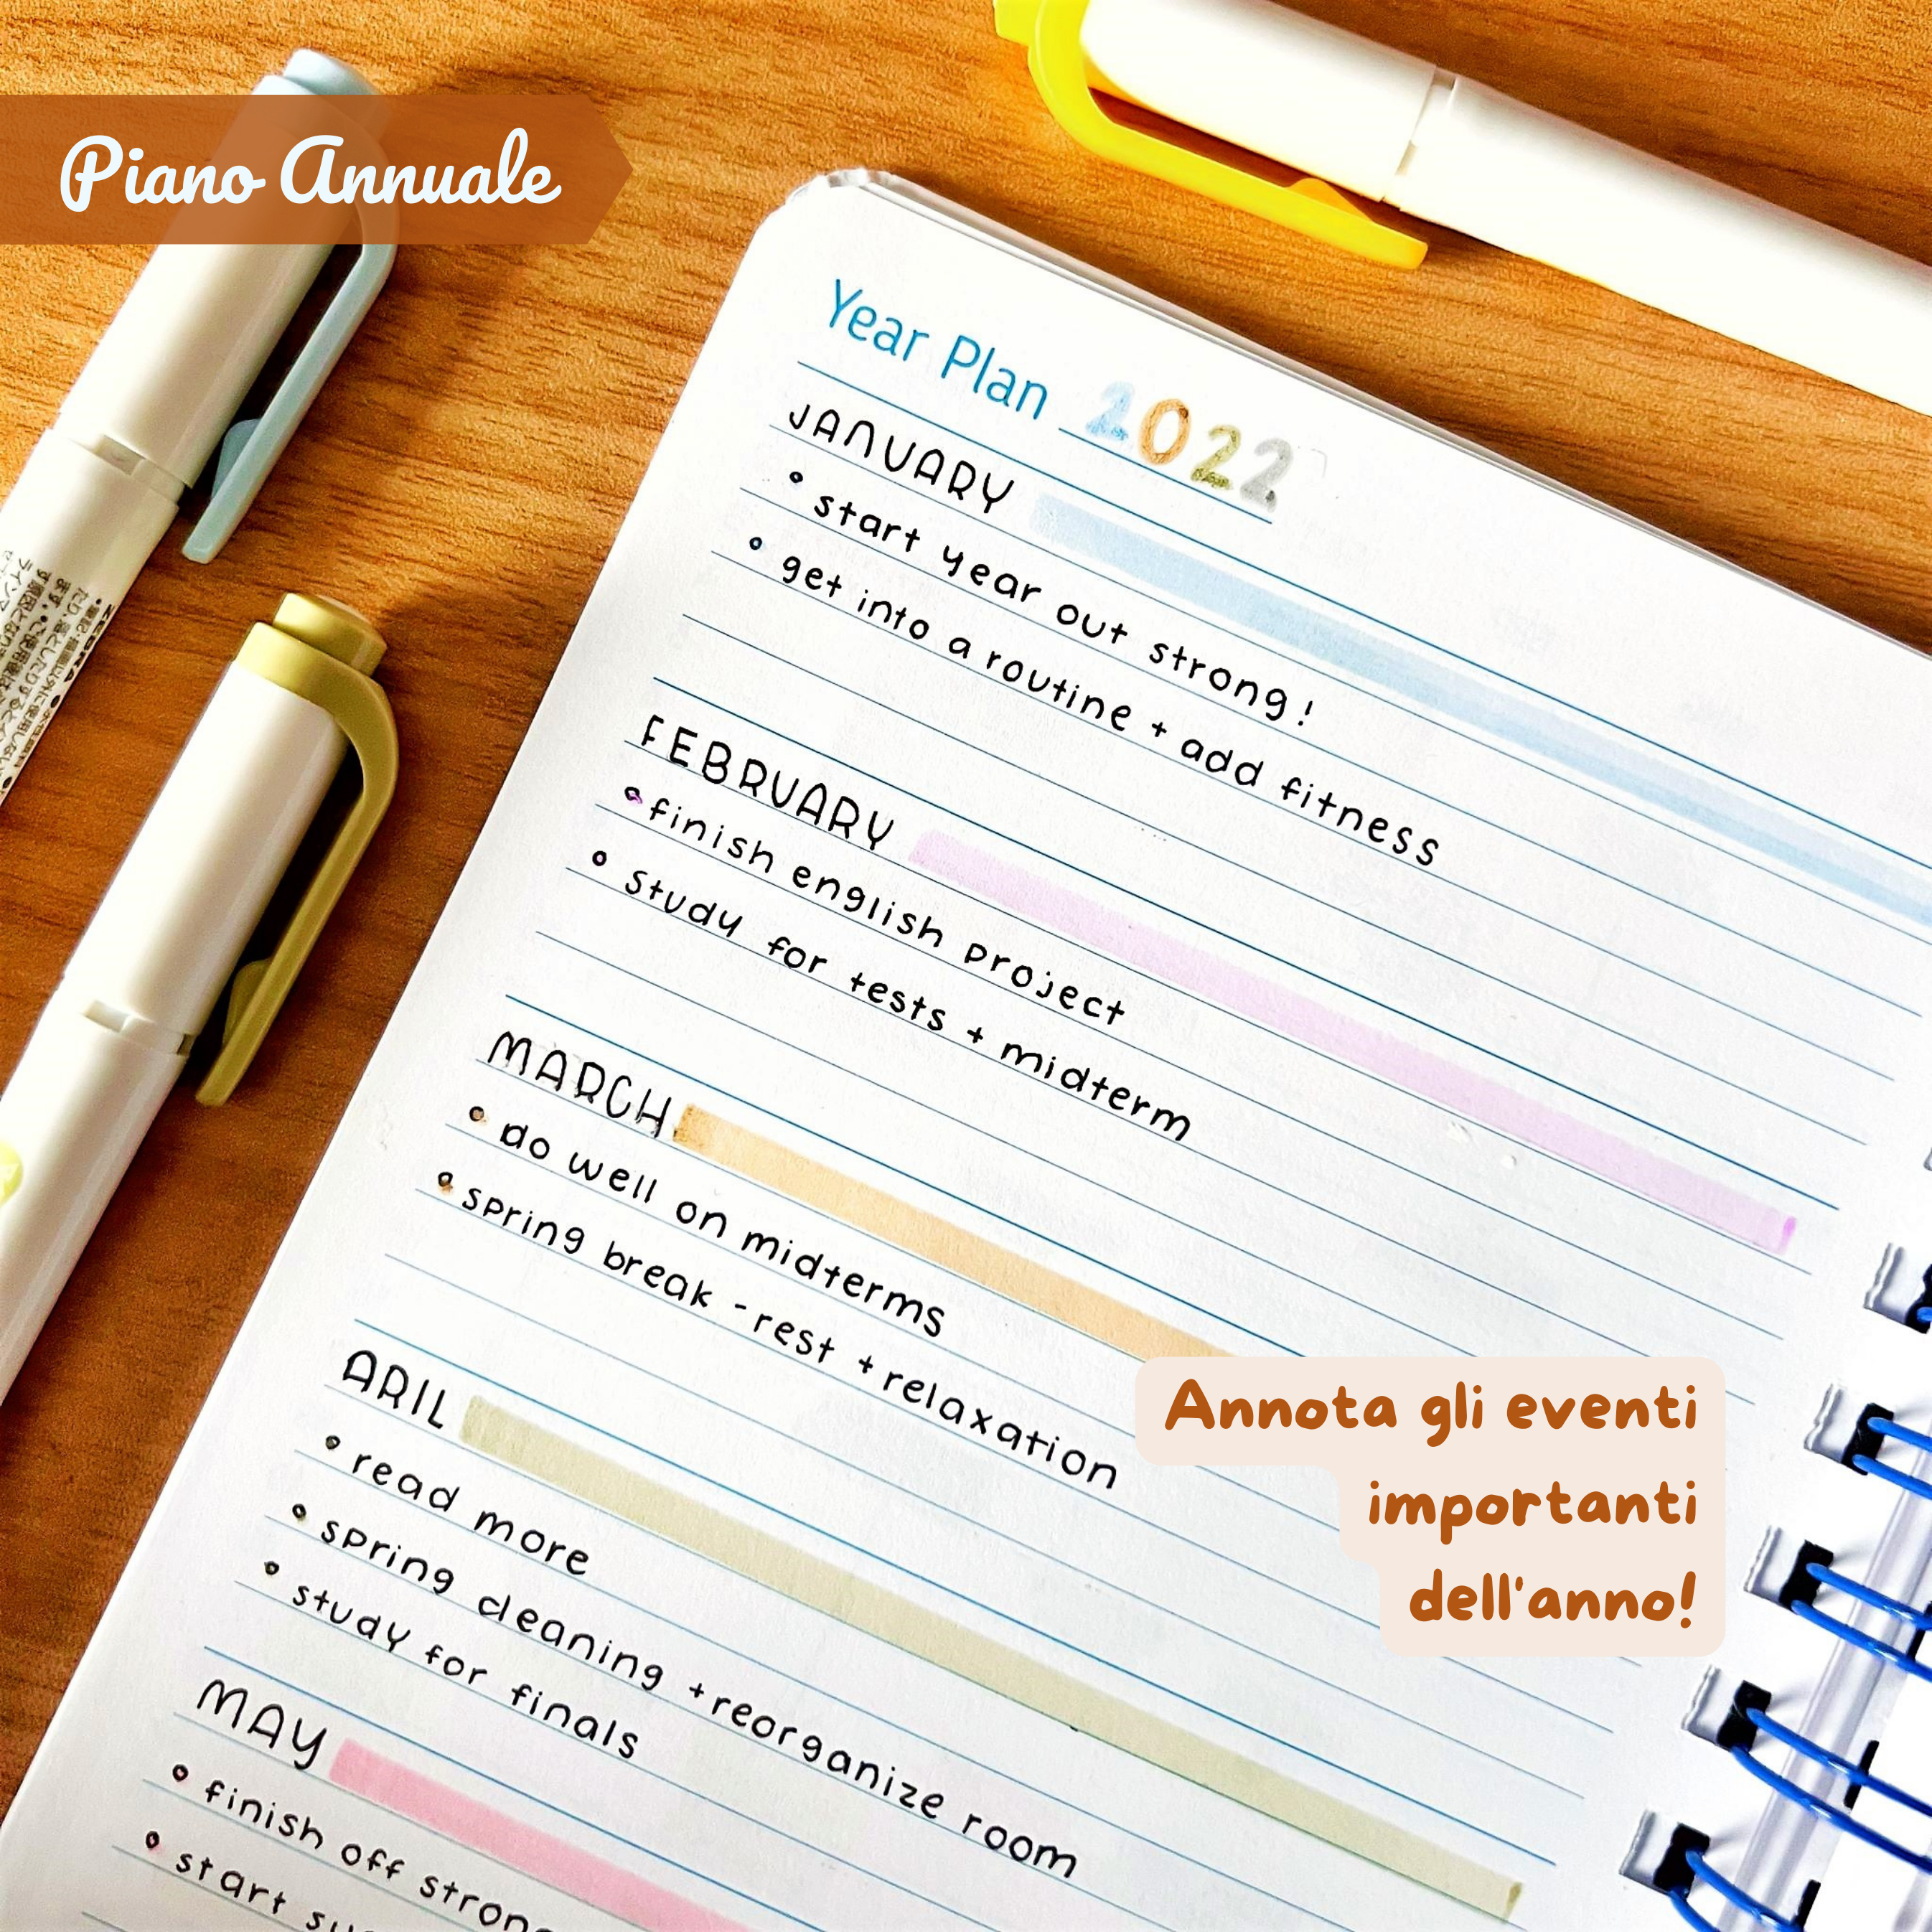 Piano Annuale
Year Plan 2022
JANUARY
• start year out strong!
• get into a routine + add fitness
FEBRUARY
• finish english project
• study for tests + midterm
MARCH
• do well on midterms
• spring break - rest + relaxation
ARIL
• read more
• spring cleaning + reorganize room
• study for finals
MAY
• finish off strong
• start
Annota gli eventi
importanti
dell'anno!
ZEBRA